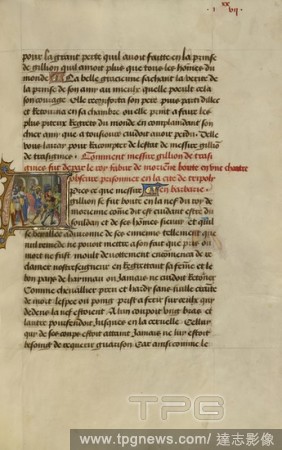 xx
· i · vii ·
pour la grant perte quil auoit faitte en la prinse
de gillion quil amoit plus que tous les hōmes du
monde La belle gracienne sachant la verite de
la prinse de son amy au mieulx quelle peult cela
son couraige Elle reconforta son pere puis party dilllec
et retourna en sa chambre ou elle print a faire les
plus piteux regretz du monde en complaindant son
chier amy que a tousiours cuidoit auoir perdu Si le
vous lairay pour racompter de lestat de messire gilliō
de trasignies Comment messire gillion de trasi
gnies fut de par le roy fabur de morienne boute en vne chartre
obscure prisonnier en la cite de tripoly
Apres ce que messire en barbarie
gillion se fut boute en la nef du roy de
morienne comme dit est cuidant estre du
souldan et de ses hōmes secouru et quil
se
tellement que
nul remede ne pouoit mettre a son fait que pris ou
mort ne fust moult deuottement commenca de re
clamer nostre seigneur en regrettant sa femme et le
bon pays de haynnau ou Jamais ne cuidoit retourner
Comme cheualier preu et hardy sans nulle crainte
de mort lespee ou poing prist a ferir sur ceulx qui
dedens la nef estoient A lun couppoit vng bras et
lautre pourfendoit Jusques en la ceruelle Cellui
qui de ses cops estoit attaint Jamais ne luy estoit
besoing de requerir guarison Car ainsi comme le
TPG
www.tpgnews.com / 達志影像